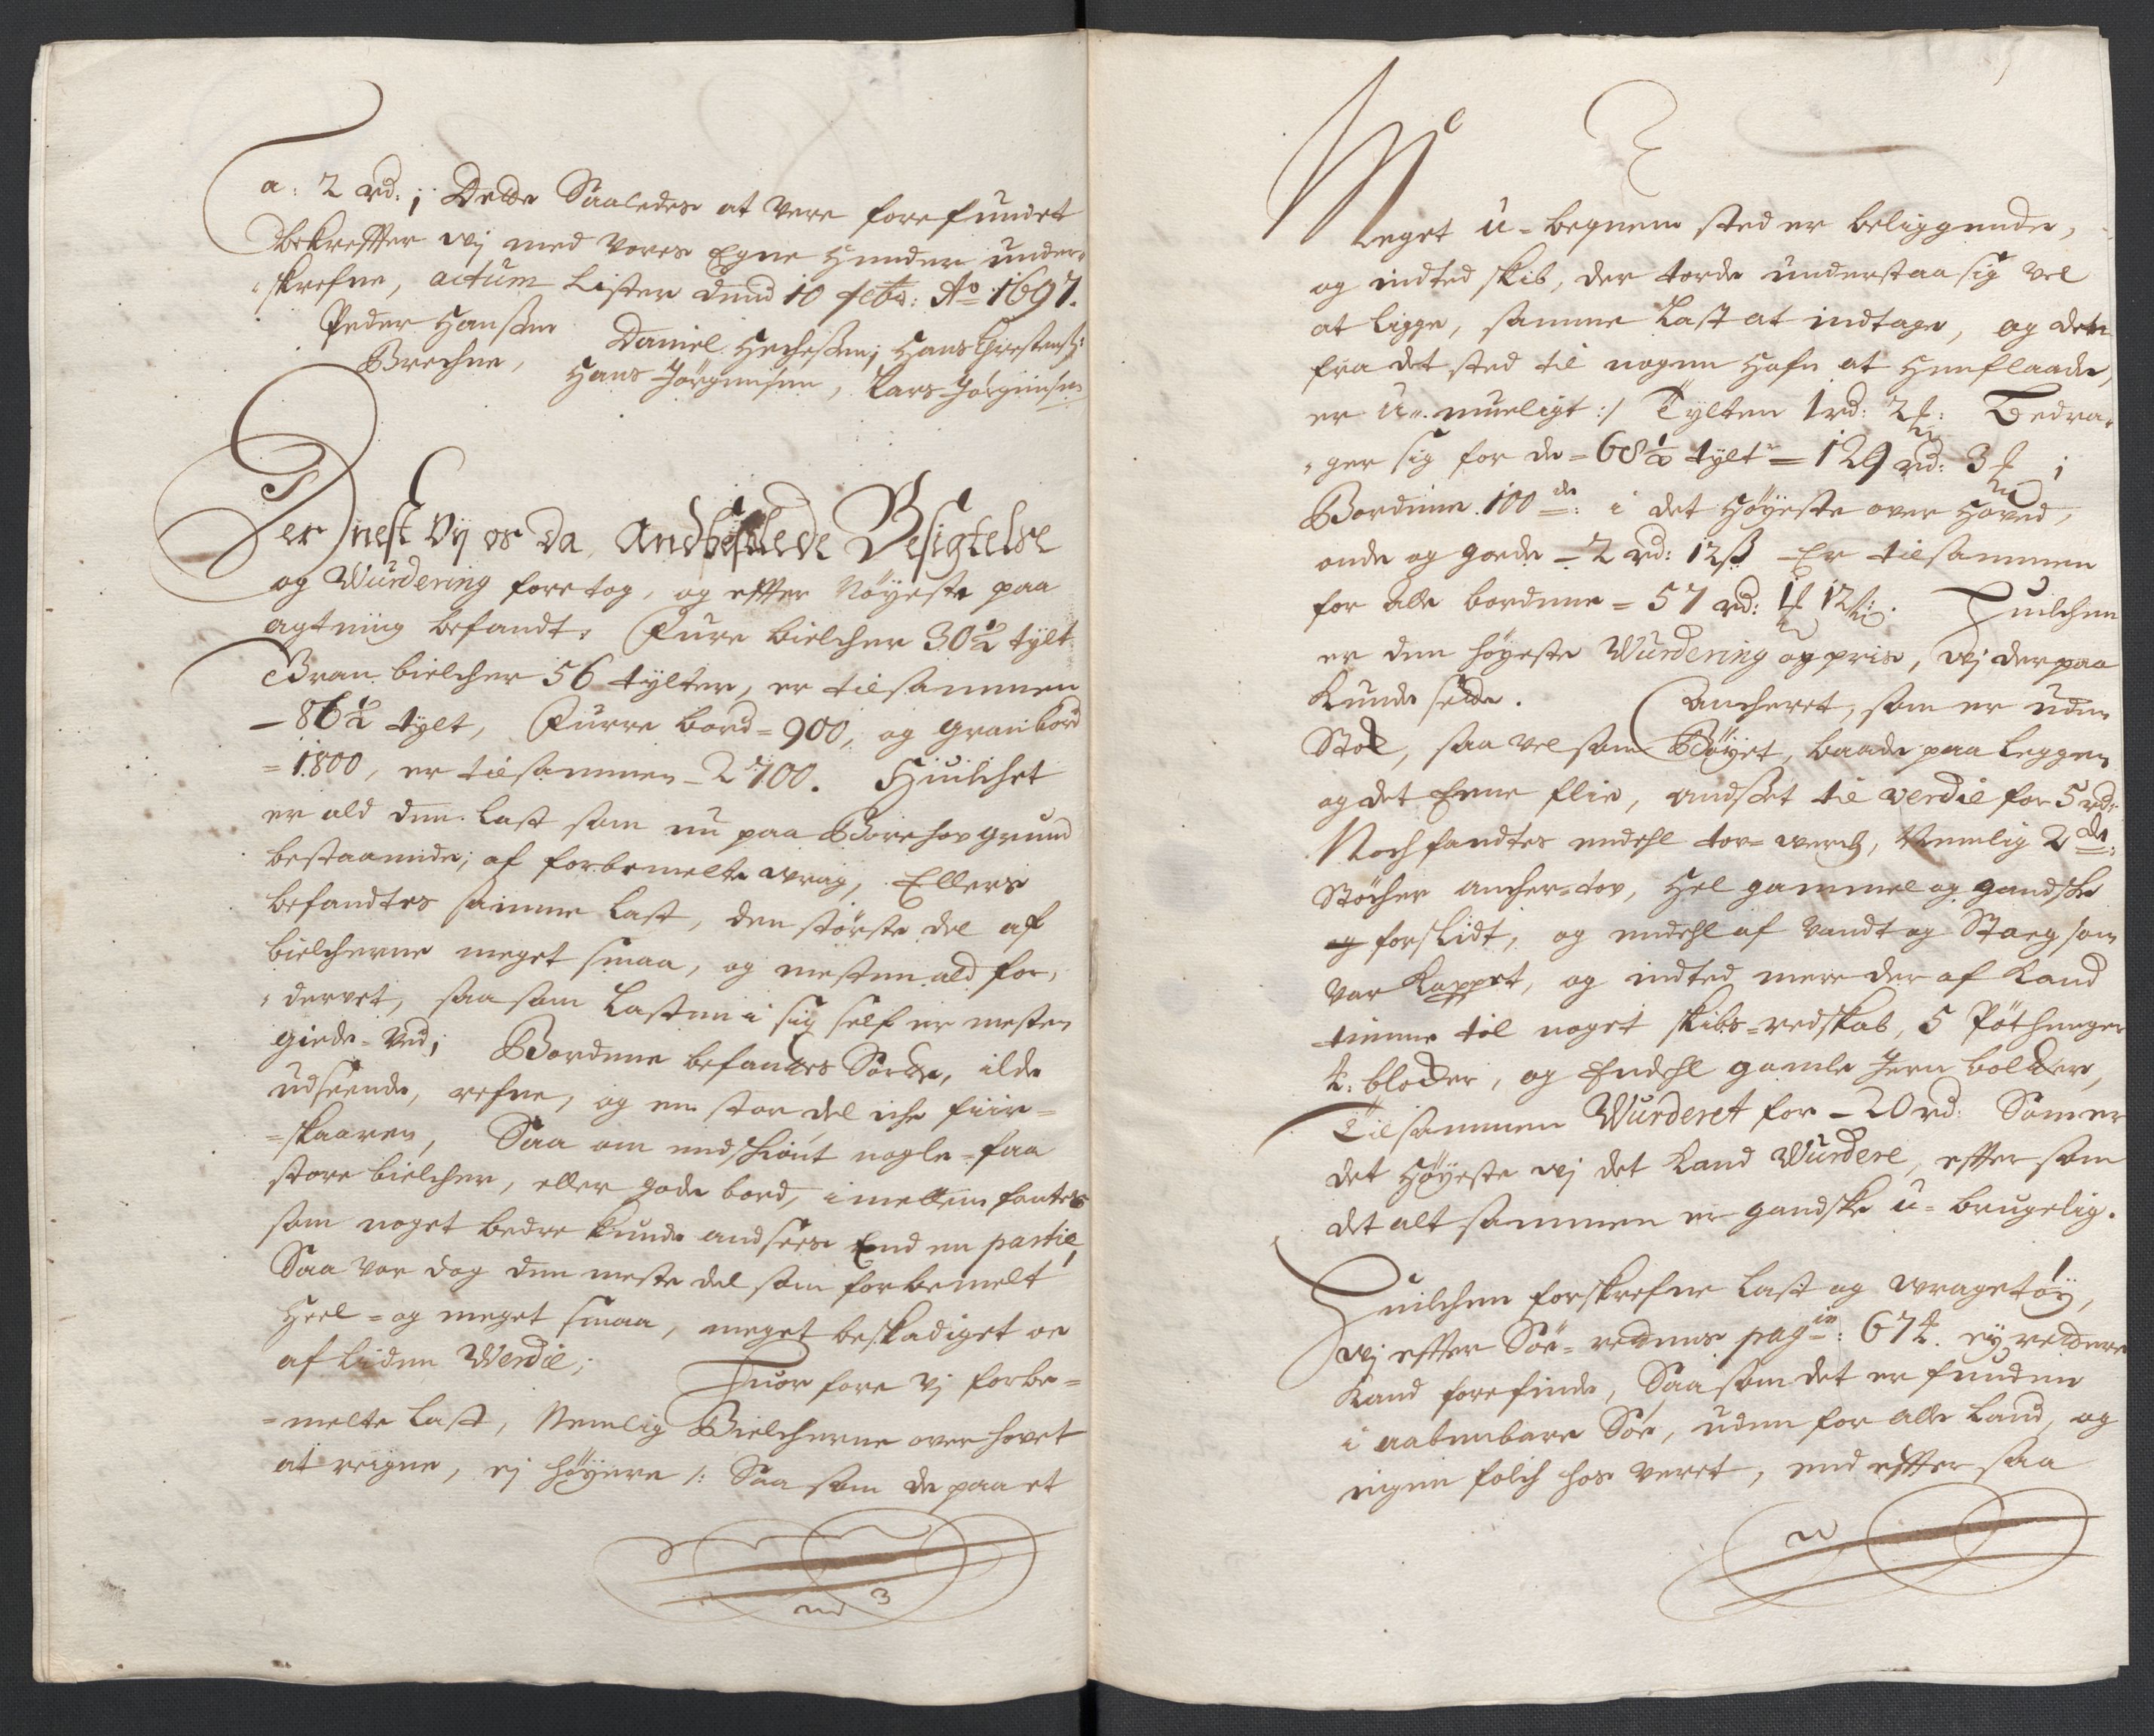 a: 2 rd: ; Dette Saaledes at Vere forefundet
bekreffter wj med vores Egne Hender under-
skrefne, actum Lister dend 10 febr: Ao 1697.
Peder Hanßen Daniel Hecheßen; Hans Christenß:
Brechne, Hans Jørgensen, Lars Jørgensen
Der nest Vij os da Andbefalede Besigtelse
og Wurdering foretog, og effter Nøyeste paa
agtning befandt: Furre bielcher 30½ tylt
Gran bielcher 56 tylter, er tilsammen
- 86½ tylt, Furre bord = 900, og gran bord
= 1800, er tilsammen - 2700. Huilchet
er ald den Last som nu paa Borehov grund
bestaaende; af forbemelte wrag, Ellers
befandtes samme Last, den største del af
bielcherne meget smaa, og mesten ald for-
dervet, saa som Lasten i sig self er mesten
giede-Ved; Bordene befandtes Sorte, ilde
udseende, refne, og en stor del iche fiir-
skaaren, Saa om endschiønt nogle-faa
store bielcher, eller gode bord, imellem fantes
som noget bedre kunde andsees End en partie,
Saa var dog den meste del som forbemelt
Heel- og meget smaa, meget beskadiget oc
af liden Werdie;
Huor fore vj forbe-
melte Last, Nemlig Bielcherne over hovet
at reigne, ej høyere /: Saa som de paa et
Meget u-beqvem sted er beliggende,
og indted skib, der torde understaa sig vel
at ligge, samme Last at indtage, og den
fra det sted til nogen Hafn at Henflaade,
er u-mueligt :/ Tylten 1 rd: 2 ₰: Bedra-
ger sig for de = 68½ tylt = 129 rd: 3 ₰ ;
Bordene 100de: i det Høyeste over Hoved,
onde og gode - 2 rd: 12 ß Er tilsammen
for alle bordene = 57 rd: 1 ₰ 12 ß:. Huilchen
er den høyeste Wurdering og pris, wj der paa
kunde sette. Ancheret, som er uden
Stok, saa vel som Bøyet, baade paa Leggen
og det Eene flie, andset til verdie for 5 rdr:
Noch fandtes endehl tov-verch, Nemlig 2de:
Støcher ancher-tov, Hel gammel og gandsche
forslidt, og endehl af vandt og Staeg som
var kappet, og indted mere der af kand
tienne til noget skibs-redskab, 5 Pøthenger
4: blocher, og Endehl gamle Jern bolter,
Tilsammen Wurderet for - 20 rd: Som er
det Høyeste wj det kand Wurdere, effter som
det alt sammen er gandske u-brugelig.
Huilchen forskrefne Last og wragetøy,
wj effter Søe-rettens pagin: 674. ey rettere
kand forefinde, Saa som det er funden
i aabenbare Søe, uden for alle Land, og
ingen folch hos veret, end effter saa